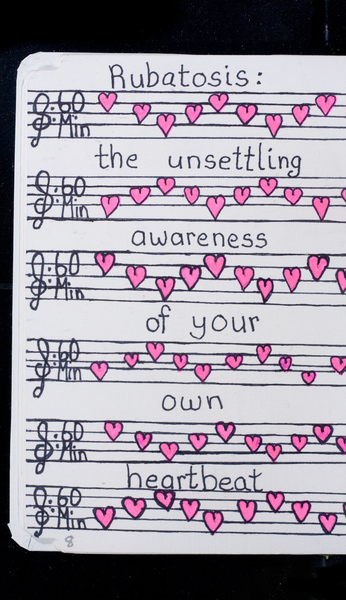 Rubatosis:
:60
Min
the unsettling
:60
Min
awareness
:60
Min
of your
:60
Min
own
:60
Min
heartbeat
:60
Min
8